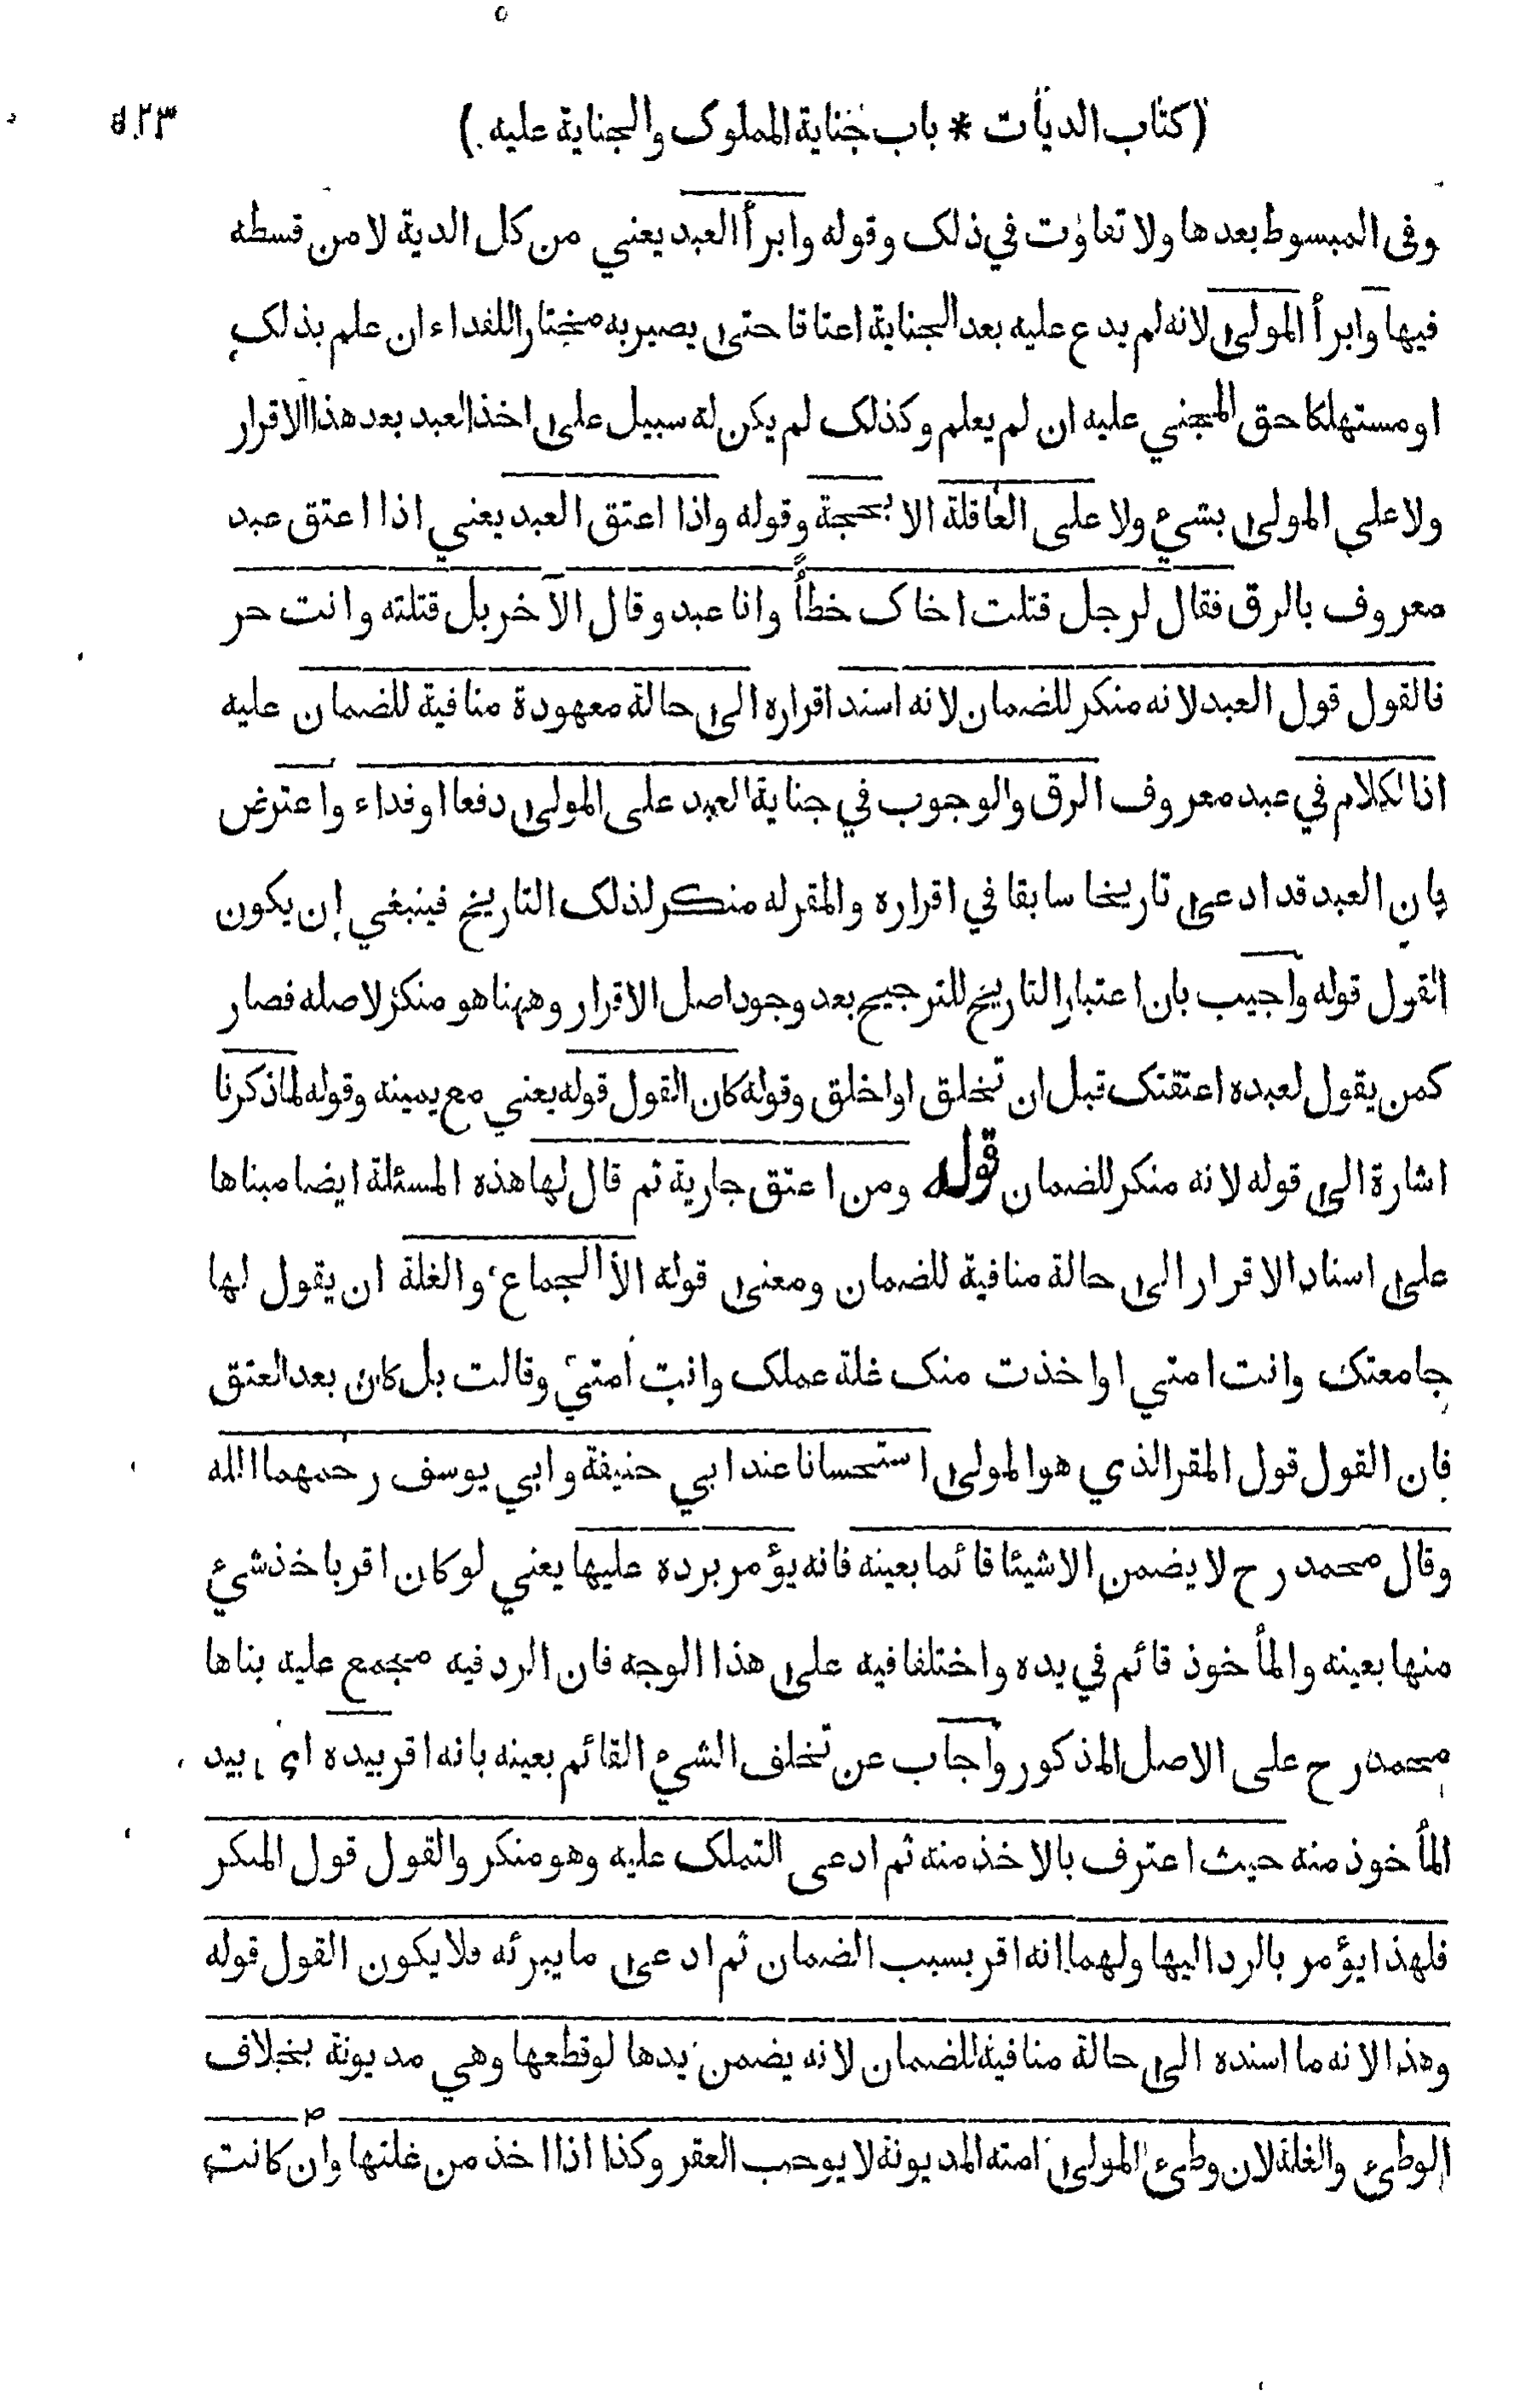 (كتاب الديات * باب جناية المملوك والجناية عليه) ٥٢٣
وفى المبسوط بعدها ولا تفاوت في ذلك وقوله وابرأ العبد يعني من كل الدية لا من قسطه
فيها وابرأ المولى لانه لم يدع عليه بعد الجناية اعتاقا حتى يصير به مختارا للفداء ان علم بذلك
او مستهلكا حق المجني عليه ان لم يعلم وكذلك لم يكن له سبيل على اخذ العبد بعد هذا الاقرار
ولا على المولى بشيء ولا على العاقلة الا بحجة وقوله واذا اعتق العبد يعني اذا اعتق عبد
معروف بالرق فقال لرجل قتلت اخاك خطأ وانا عبد وقال الآخر بل قتلته وانت حر
فالقول قول العبد لانه منكر للضمان لانه اسند اقراره الى حالة معهودة منافية للضمان عليه
اذ الكلام في عبد معروف الرق والوجوب في جناية العبد على المولى دفعا او فداء واعترض
بان العبد قد ادعى تاريخا سابقا في اقراره والمقر له منكر لذلك التاريخ فينبغي ان يكون
القول قوله واجيب بان اعتبار التاريخ للترجيح بعد وجود اصل الاقرار وههنا هو منكر لاصله فصار
كمن يقول لعبده اعتقتك قبل ان تخلق او اخلق وقوله كان القول قوله يعني مع يمينه وقوله لما ذكرنا
اشارة الى قوله لانه منكر للضمان قوله ومن اعتق جارية ثم قال لها هذه المسئلة ايضا مبناها
على اسناد الاقرار الى حالة منافية للضمان ومعنى قوله الا الجماع والغلة ان يقول لها
جامعتك وانت امتي او اخذت منك غلة عملك وانت امتي وقالت بل كان بعد العتق
فان القول قول المقر الذي هو المولى استحسانا عند ابي حنيفة وابي يوسف رحمهما الله
وقال محمد رح لا يضمن الا شيئا قائما بعينه فانه يؤمر برده عليها يعني لو كان اقر باخذ شيء
منها بعينه والمأخوذ قائم في يده واختلفا فيه على هذا الوجه فان الرد فيه مجمع عليه بناها
محمد رح على الاصل المذكور واجاب عن تخلف الشيء القائم بعينه بانه اقر بيده اى بيد
المأخوذ منه حيث اعترف بالاخذ منه ثم ادعى التملك عليه وهو منكر والقول قول المنكر
فلهذا يؤمر بالرد اليها ولهما انه اقر بسبب الضمان ثم ادعى ما يبرئه فلا يكون القول قوله
وهذا لانه ما اسنده الى حالة منافية للضمان لانه يضمن يدها لو قطعها وهي مديونة بخلاف
الوطىء والغلة لان وطىء المولى امته المديونة لا يوجب العقر وكذا اذا اخذ من غلتها وان كانت